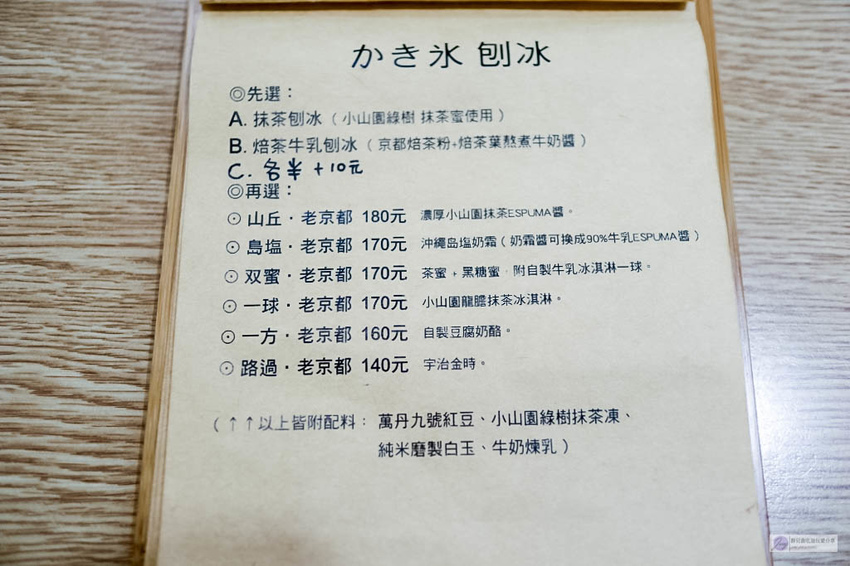 かき氷 刨冰
◎先選：
A. 抹茶刨冰（小山園綠樹 抹茶蜜使用）
B. 焙茶牛乳刨冰（京都焙茶粉+焙茶葉熬煮牛奶醬）
C. 各半 +10元
◎再選：
⊙ 山丘・老京都 180元 濃厚小山園抹茶ESPUMA醬。
⊙ 島塩・老京都 170元 沖繩島塩奶霜（奶霜醬可換成90%牛乳ESPUMA醬）
⊙ 双蜜・老京都 170元 茶蜜 + 黑糖蜜，附自製牛乳冰淇淋一球。
⊙ 一球・老京都 170元 小山園龍膽抹茶冰淇淋。
⊙ 一方・老京都 160元 自製豆腐奶酪。
⊙ 路過・老京都 140元 宇治金時。
（↑↑以上皆附配料： 萬丹九號紅豆、小山園綠樹抹茶凍、
純米磨製白玉、牛奶煉乳）